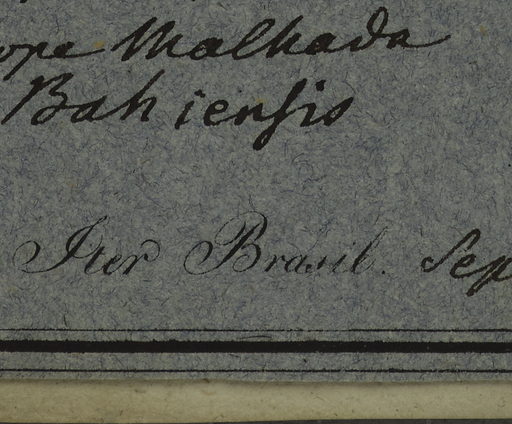 prope Malhada
Bahiensis
Iter Brasil. Sep